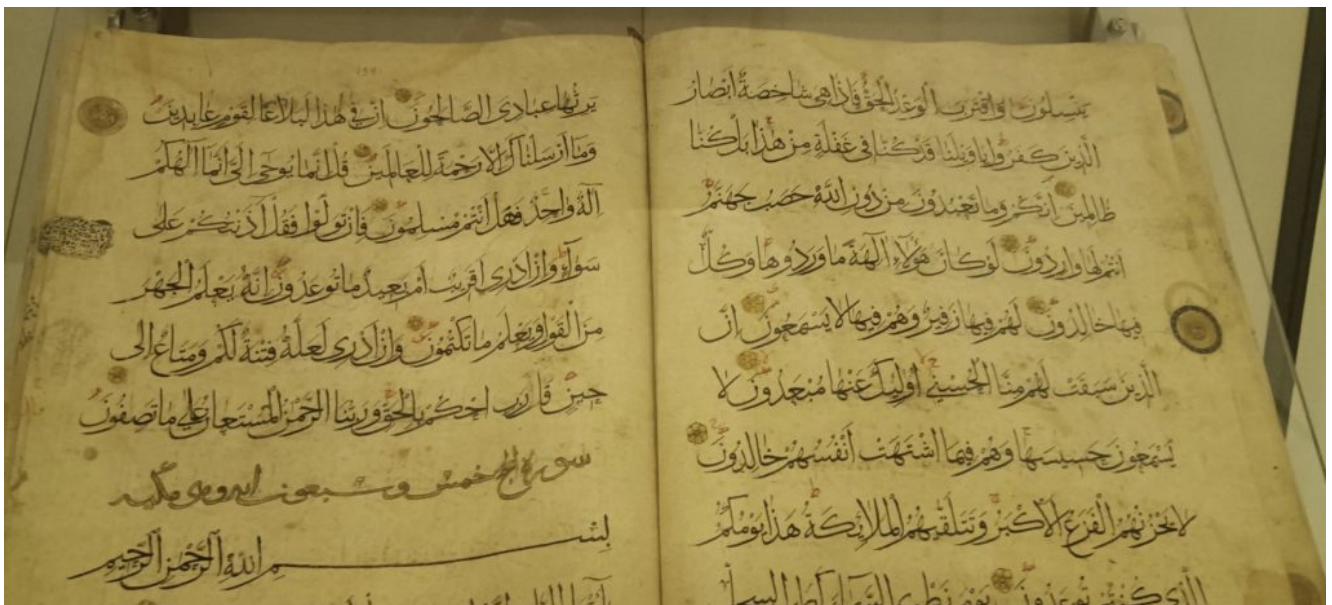 ينسلون واقترب الوعد الحق فاذا هي شاخصة ابصار
الذين كفروا يا ويلنا قد كنا في غفلة من هذا بل كنا
ظالمين انكم وما تعبدون من دون الله حصب جهنم
انتم لها واردون لو كان هؤلاء آلهة ما وردوها وكل
فيها خالدون لهم فيها زفير وهم فيها لا يسمعون ان
الذين سبقت لهم منا الحسنى اوليك عنها مبعدون لا
يسمعون حسيسها وهم فيما اشتهت انفسهم خالدون
لا يحزنهم الفزع الاكبر وتتلقيهم الملائكة هذا يومكم
الذي كنتم توعدون يوم نطوي السماء كطي السجل
يرثها عبادي الصالحون ان في هذا لبلاغا لقوم عابدين
وما ارسلناك الا رحمة للعالمين قل انما يوحى الي انما الهكم
اله واحد فهل انتم مسلمون فان تولوا فقل آذنتكم على
سواء وان ادري اقريب ام بعيد ما توعدون انه يعلم الجهر
من القول ويعلم ما تكتمون وان ادري لعله فتنة لكم ومتاع الى
حين قال رب احكم بالحق وربنا الرحمن المستعان على ما تصفون
سورة الحج خمس وسبعون اية وهي مكية
بسم الله الرحمن الرحيم